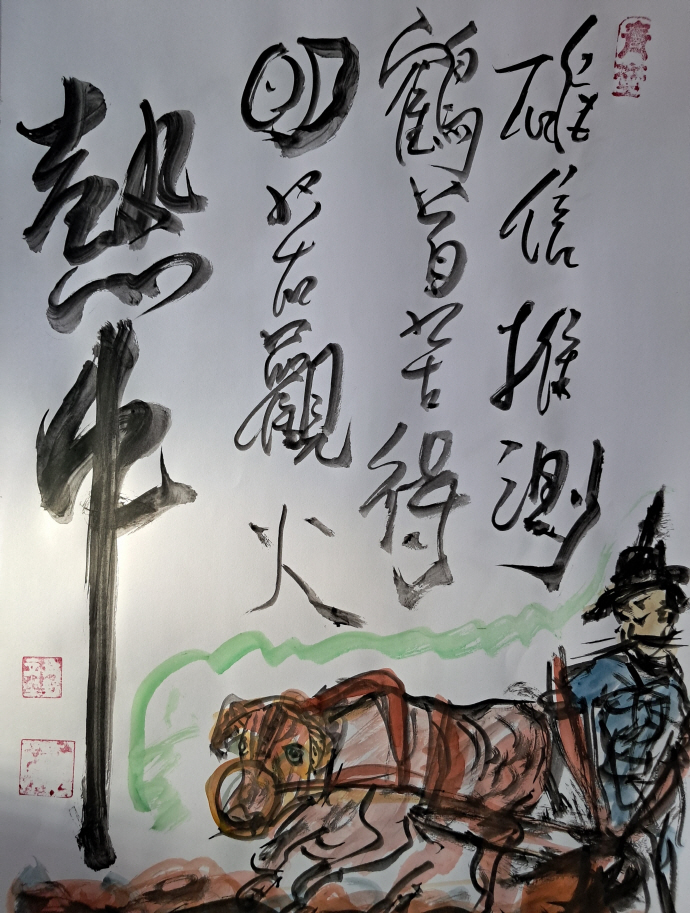 確信推測
鶴首苦得
明若觀火
熱中